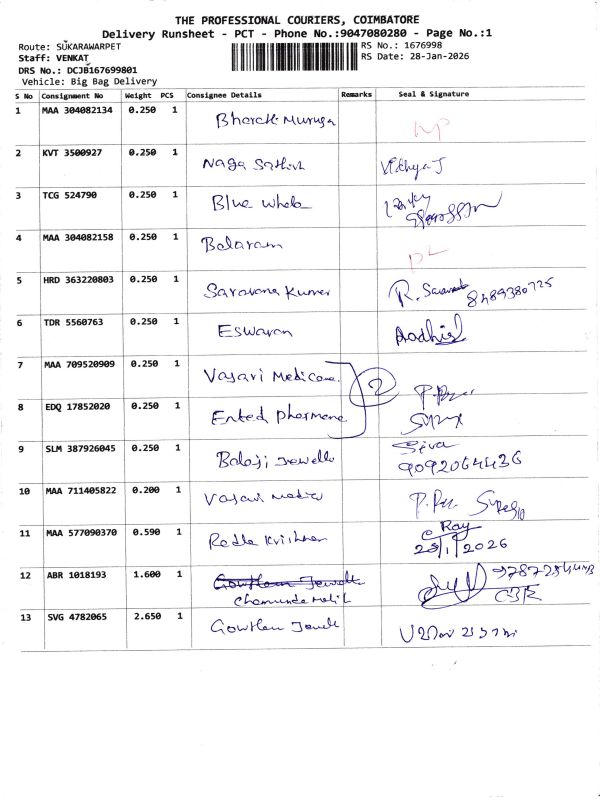 THE PROFESSIONAL COURIERS, COIMBATORE
Delivery Runsheet - PCT - Phone No.:9047080280 - Page No.:1
Route: SUKARAWARPET
RS No.: 1676998
Staff: VENKAT
RS Date: 28-Jan-2026
DRS No.: DCJB167699801
Vehicle: Big Bag Delivery
S No Consignment No Weight PCS Consignee Details Remarks Seal & Signature
1 MAA 304082134 0.250 1 Bharathi Muruga
2 KVT 3500927 0.250 1 Naga Sathish Vidhya J
3 TCG 524790 0.250 1 Blue Whale
4 MAA 304082158 0.250 1 Balaram
5 HRD 363220803 0.250 1 Saravana Kumar R. 8489380725
6 TDR 5560763 0.250 1 Eswaran
7 MAA 709520909 0.250 1 Vasavi Medicare 2
8 EDQ 17852020 0.250 1
9 SLM 387926045 0.250 1 Balaji Jewells Siva
9092064436
10 MAA 711405822 0.200 1 Vasavi
11 MAA 577090370 0.590 1 Radha Krishnan
2026
12 ABR 1018193 1.600 1 Gowtham Jewells
13 SVG 4782065 2.650 1 Gowtham